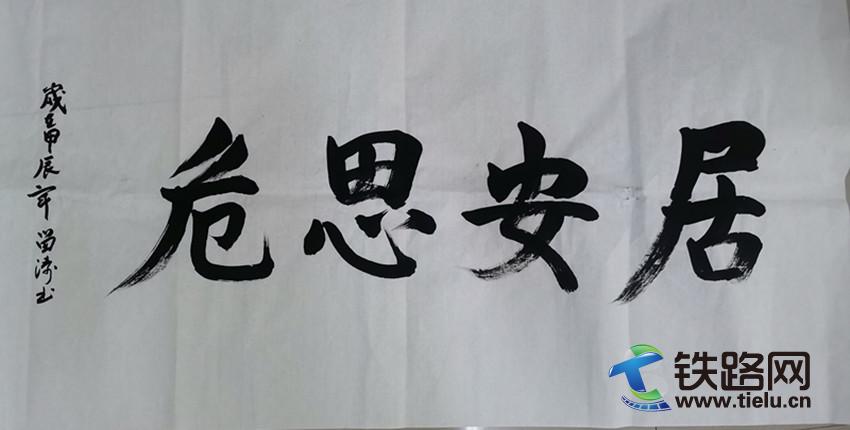 居安思危
岁在甲辰年
铁路网
www.tielu.cn